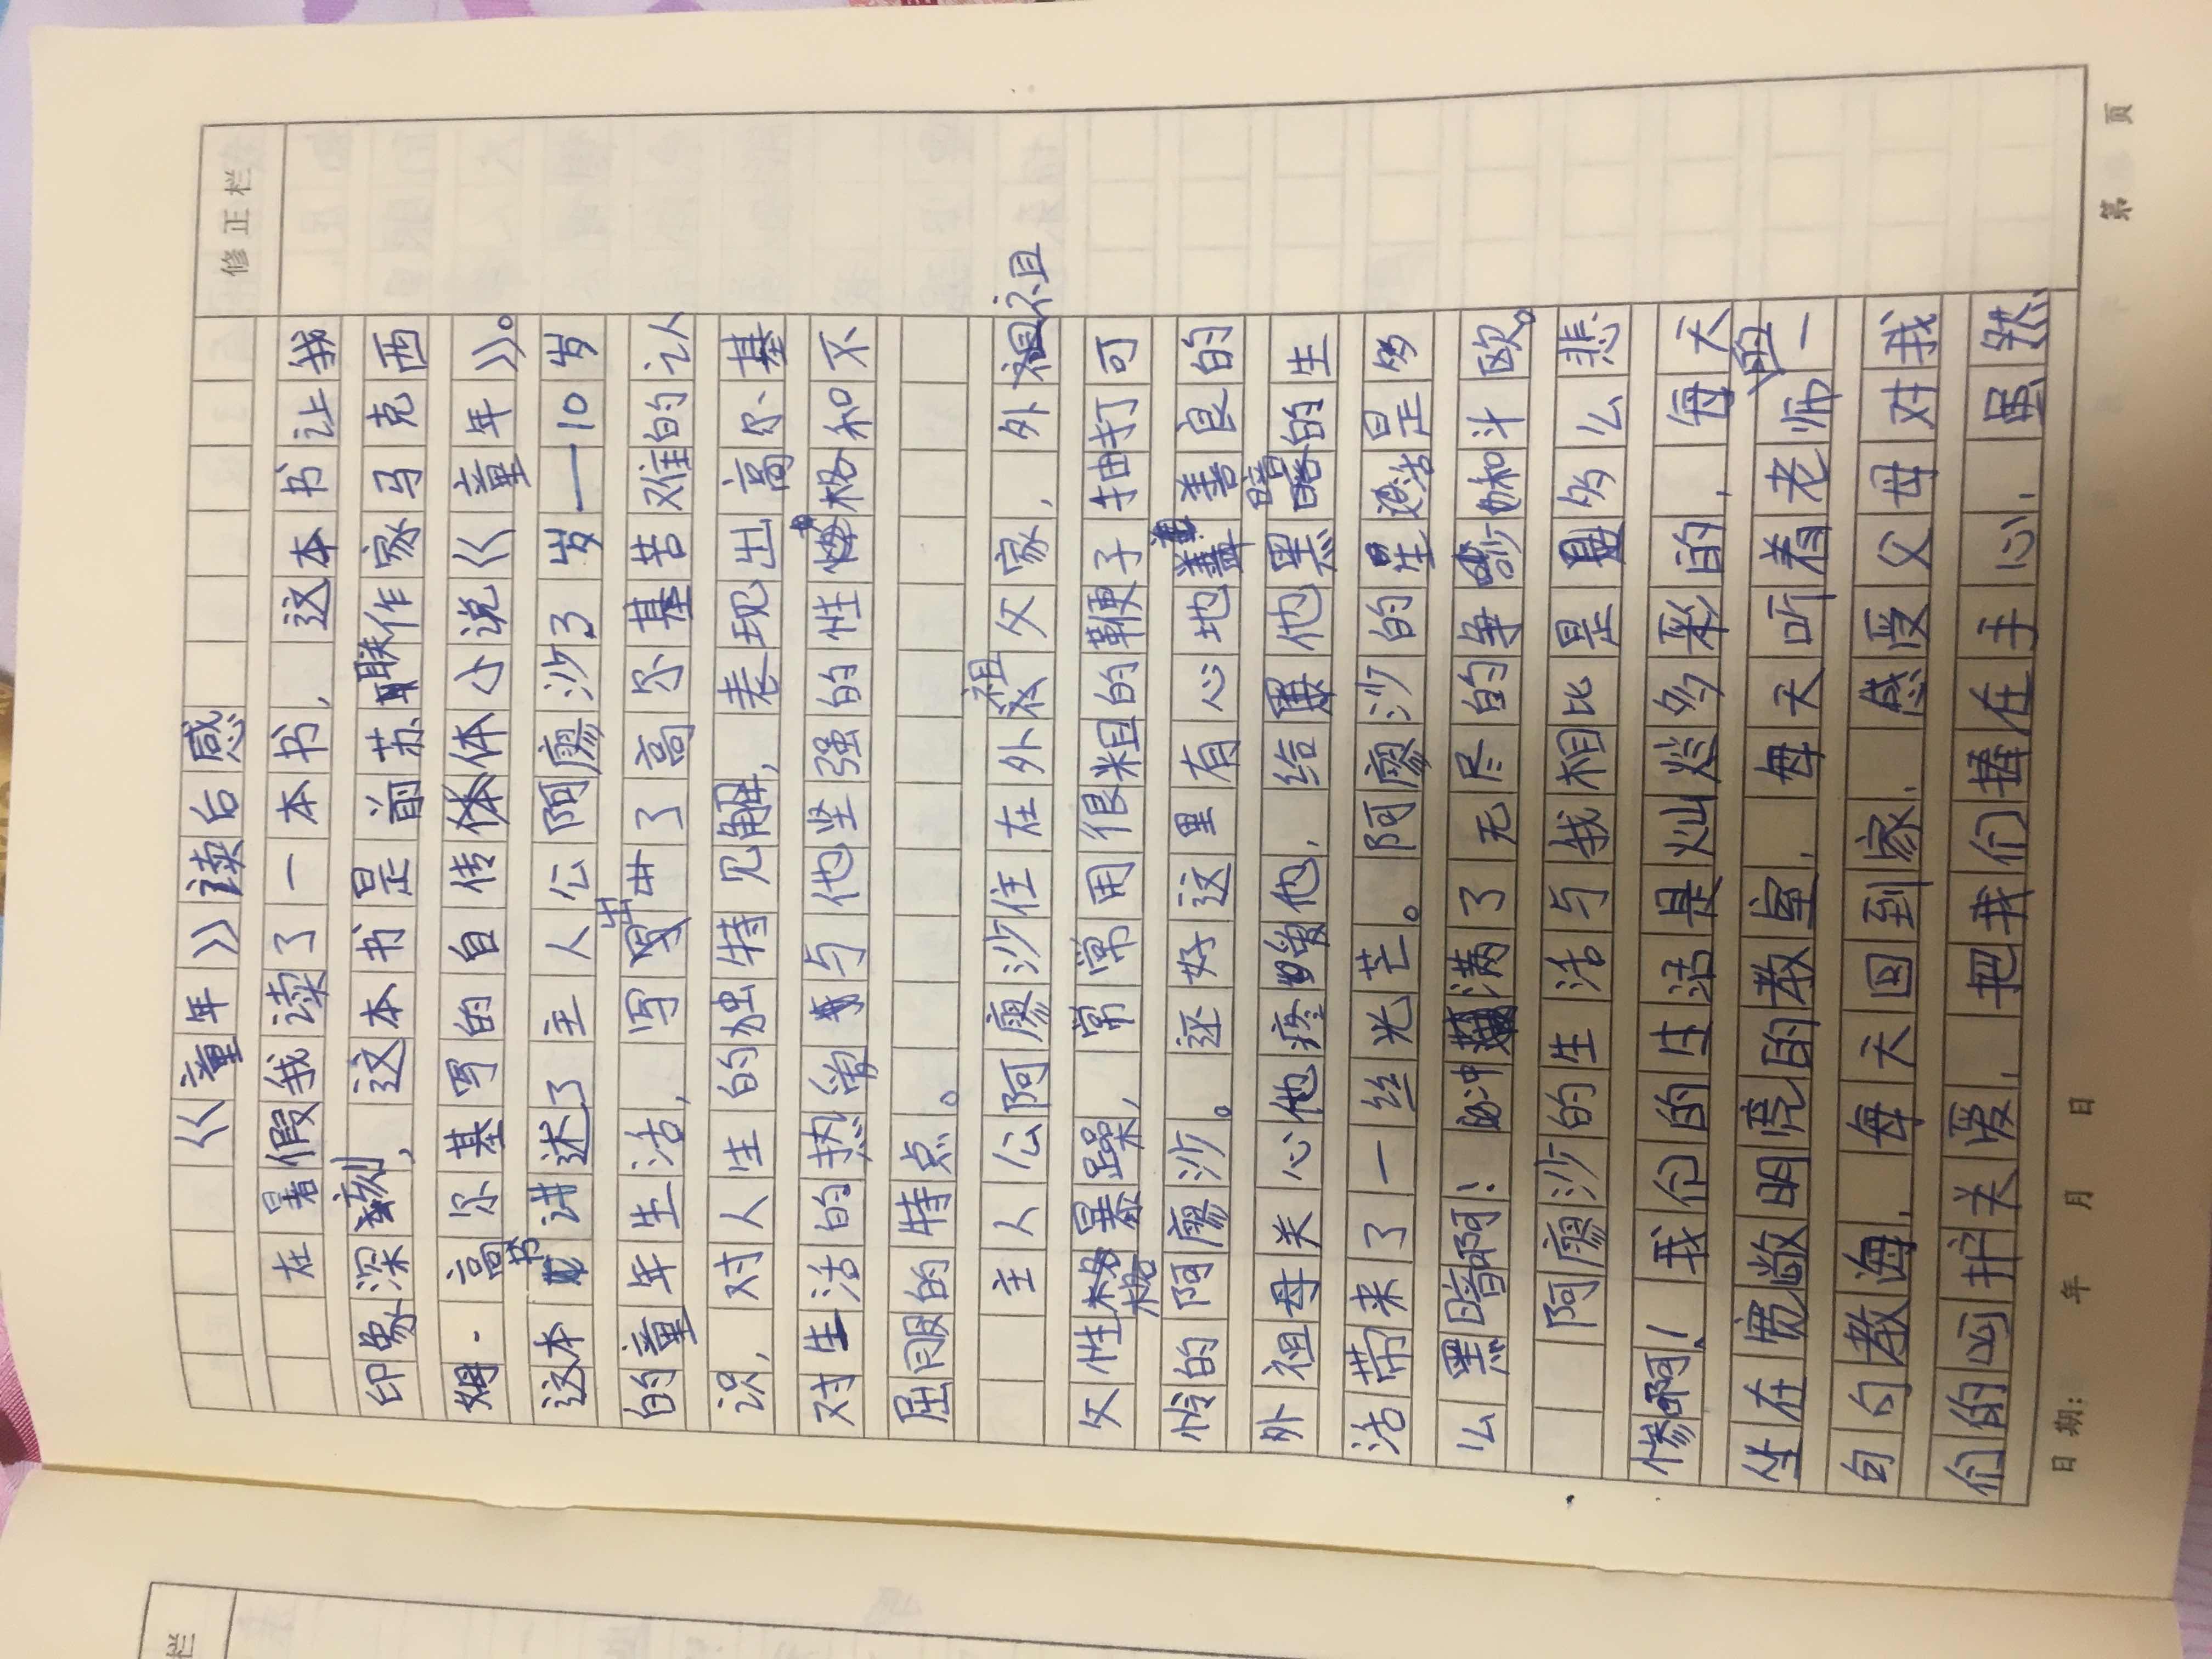 修正栏
《童年》读后感
在暑假我读了一本书，这本书让我
印象深刻，这本书是前苏联作家马克西
姆·高尔基写的自传体小说《童年》。
这本书讲述了主人公阿廖沙3岁—10岁
的童年生活，写出了高尔基苦难的认
识，对人生的独特见解，表现出高尔基
对生活的热爱与他坚强的性格和不
屈服的特点。
主人公阿廖沙住在外祖父家，外祖
父性格暴躁，常常用很粗的鞭子抽打可
怜的阿廖沙。还好这里有心地善良的
外祖母关心他疼爱他，给他黑暗的生
活带来了一丝光芒。阿廖沙的生活是多
么黑暗啊！心中满了无尽的争吵和斗殴。
阿廖沙的生活与我相比是多么悲
惨啊！我们的生活是灿烂多彩的，每天
坐在宽敞明亮的教室，每天听着老师的一
句句教诲，每天回到家，感受父母对我
们的呵护关爱，把我们捧在手心，虽然
日期： 年 月 日
第 页
栏